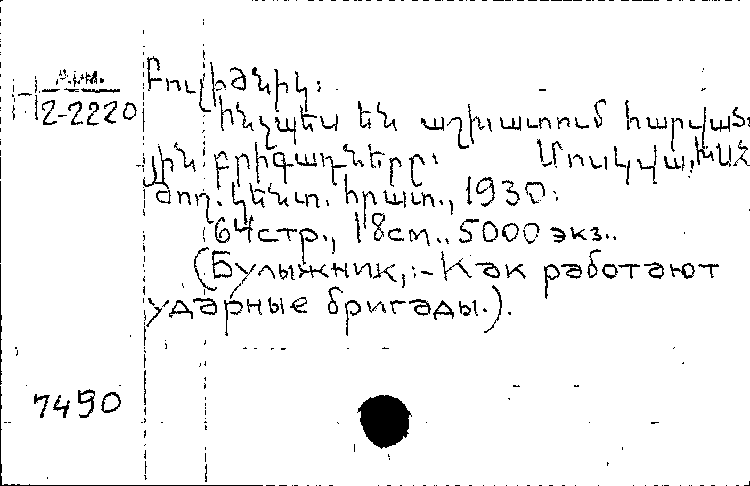 Арм.
2-2220
Բուլիժնիկ։
Ինչպես են աշխատում հարված
յին բրիգադները։ Մոսկվա, ԽՍՀ
ժող. կենտ. հրատ., 1930։
64 стр., 18 см., 5000 экз..
(Булыжник,:-Как работают
ударные бригады.).
7490